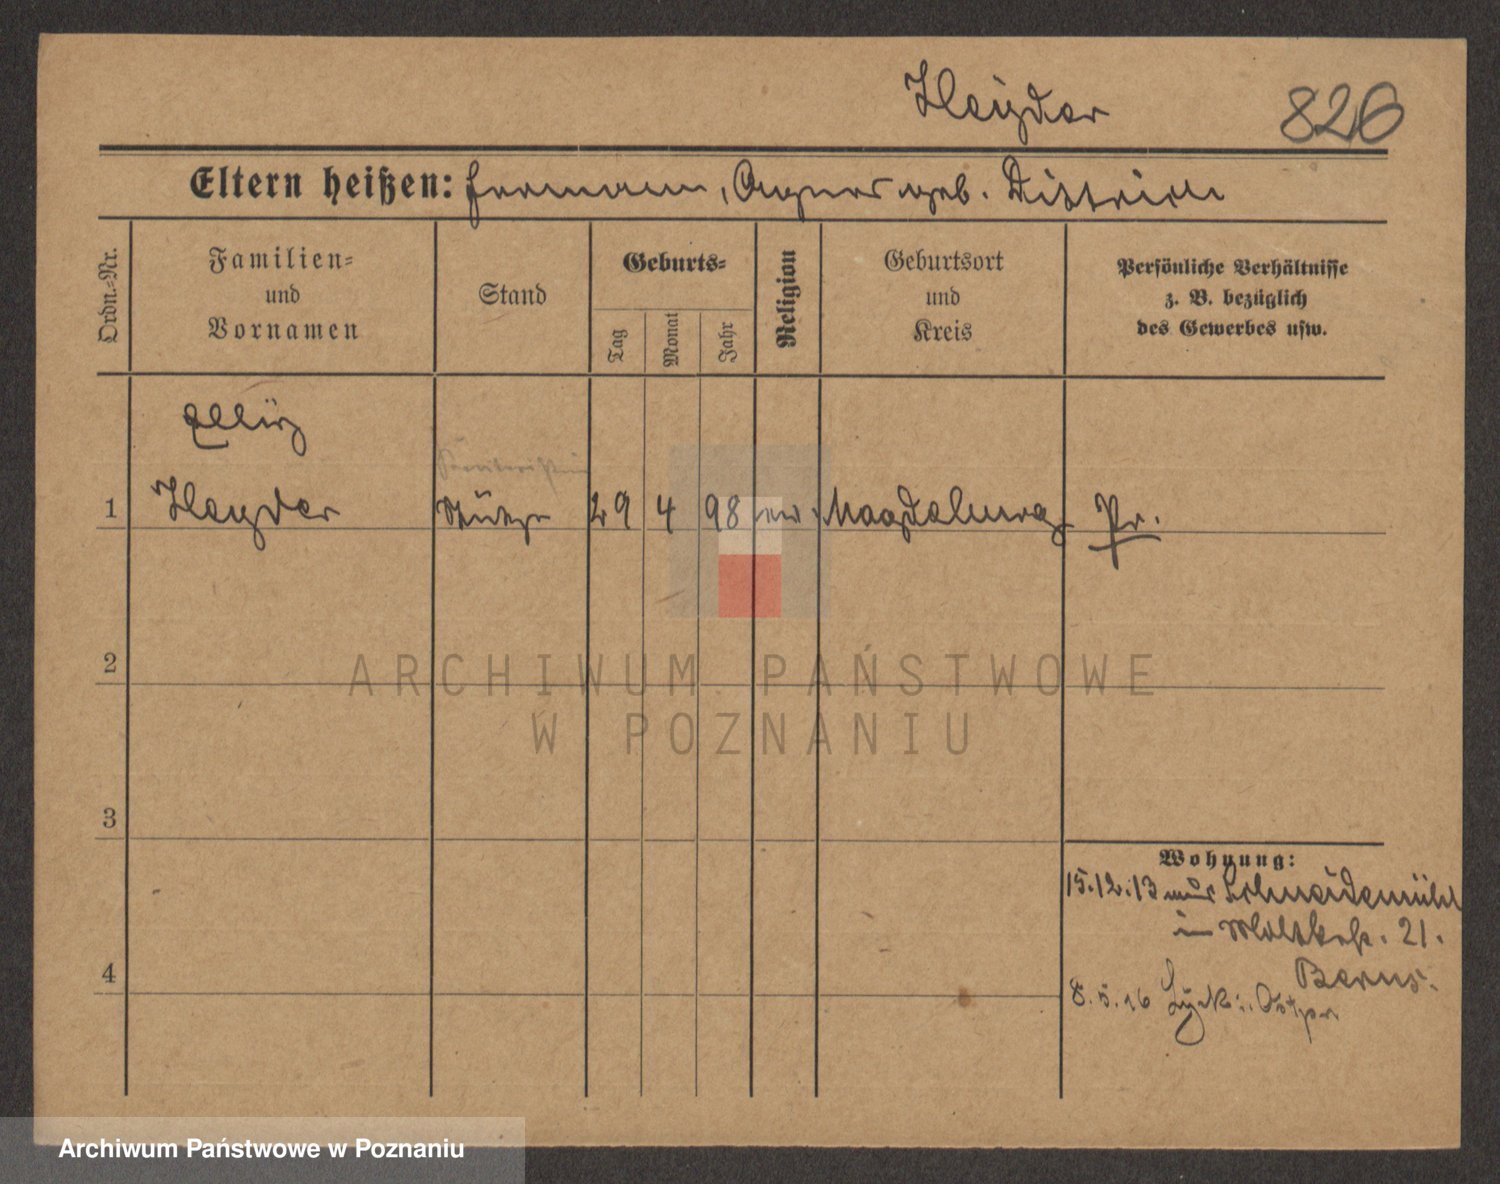 Heyder 826
Eltern heißen: Hermann, Agnes geb. Dittrich
Ordn.-Nr.
Familien-
und
Vornamen
Stand
Geburts-
Tag
Monat
Jahr
Religion
Geburtsort
und
Kreis
Persönliche Verhältnisse
z. B. bezüglich
des Gewerbes usw.
1 Heyder Stütze 29 4 98 ev. Magdeburg Pr.
2
ARCHIWUM PAŃSTWOWE
W POZNANIU
3
Wohnung:
15.12.13 aus Schneidemühl
in Moltkestr. 21.
4
8.5.16 Lyck i. Ostpr.
Archiwum Państwowe w Poznaniu